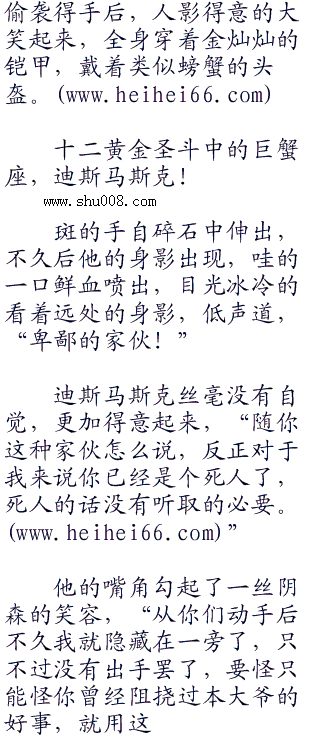 偷袭得手后，人影得意的大
笑起来，全身穿着金灿灿的
铠甲，戴着类似螃蟹的头
盔。(www.heihei66.com)
十二黄金圣斗中的巨蟹
座，迪斯马斯克！
www.shu008.com
斑的手自碎石中伸出，
不久后他的身影出现，哇的
一口鲜血喷出，目光冰冷的
看着远处的身影，低声道，
“卑鄙的家伙！”
迪斯马斯克丝毫没有自
觉，更加得意起来，“随你
这种家伙怎么说，反正对于
我来说你已经是个死人了，
死人的话没有听取的必要。
(www.heihei66.com)”
他的嘴角勾起了一丝阴
森的笑容，“从你们动手后
不久我就隐藏在一旁了，只
不过没有出手罢了，要怪只
能怪你曾经阻挠过本大爷的
好事，就用这